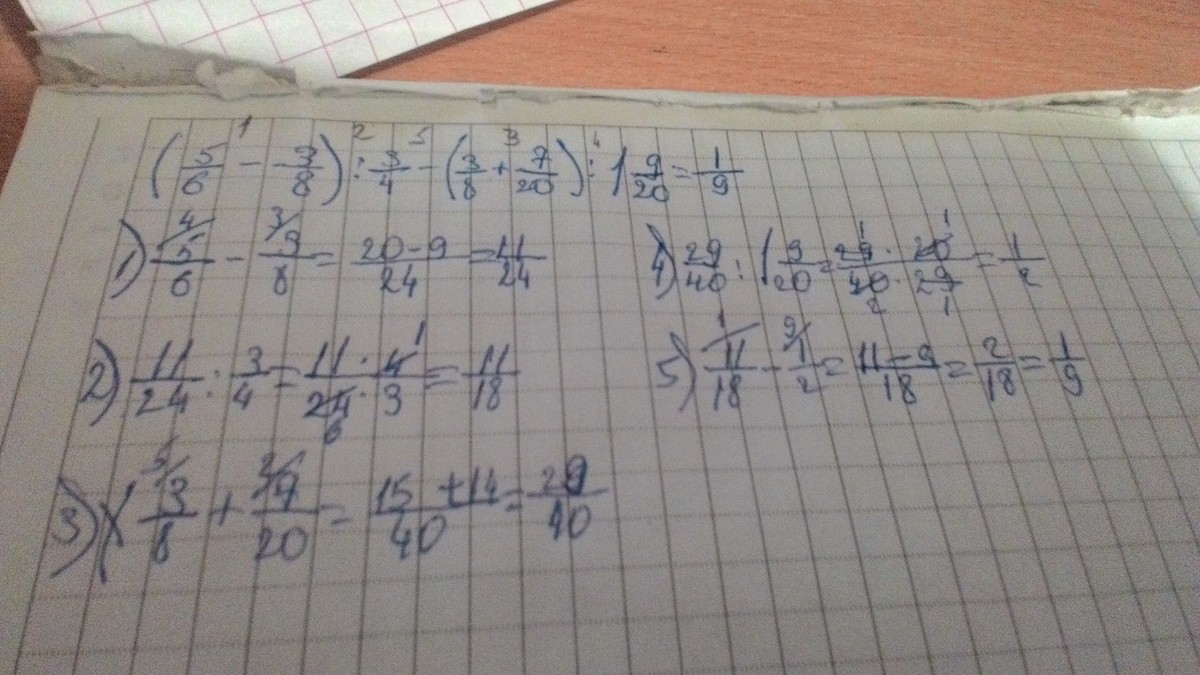 1 2 5 3 4
(5/6 - 3/8) : 3/4 - (3/8 + 7/20) : 1 9/20 = 1/9
1) 5/6 (4 - 3/8 (3 = 20-9/24 = 11/24
2) 11/24 : 3/4 = 11·4/24·3 = 11/18
1
6
3) 3/8 (5 + 7/20 (2 = 15+14/40 = 29/40
4) 29/40 : 1 9/20 = 29·20/40·29 = 1/2
1 1
2 1
5) 11/18 (1 - 1/2 (9 = 11-9/18 = 2/18 = 1/9